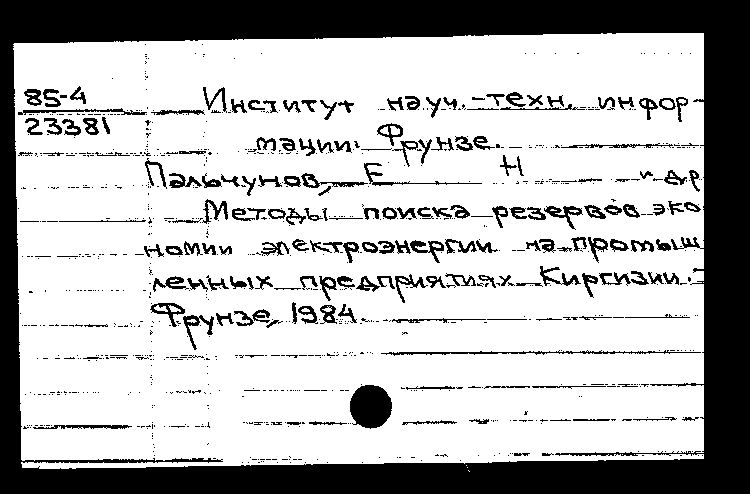 85-4
23381
Институт науч.-техн. инфор-
мации. Фрунзе.
Пальчунов, Е Н и др
Методы поиска резервов эко
номии электроэнергии на промыш
ленных предприятиях Киргизии.-
Фрунзе, 1984.